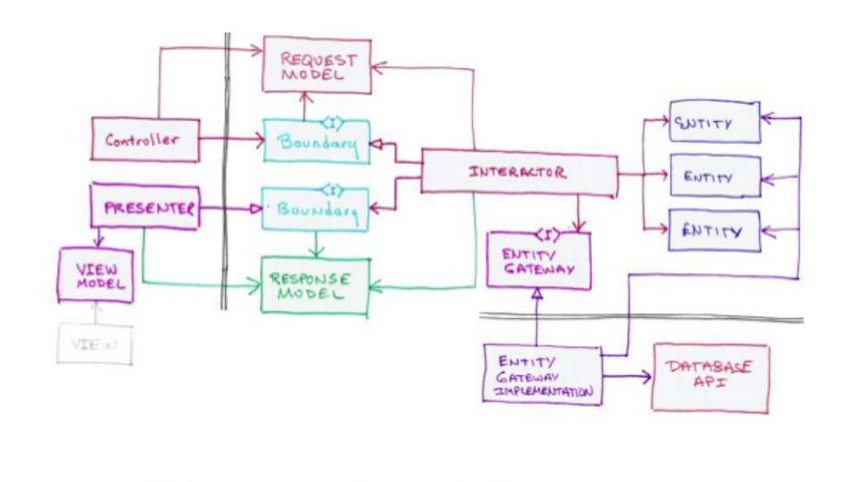 REQUEST
MODEL
Controller
<I>
Boundary
INTERACTOR
ENTITY
ENTITY
ENTITY
PRESENTER
<I>
Boundary
<I>
ENTITY
GATEWAY
VIEW
MODEL
RESPONSE
MODEL
VIEW
ENTITY
GATEWAY
IMPLEMENTATION
DATABASE
API